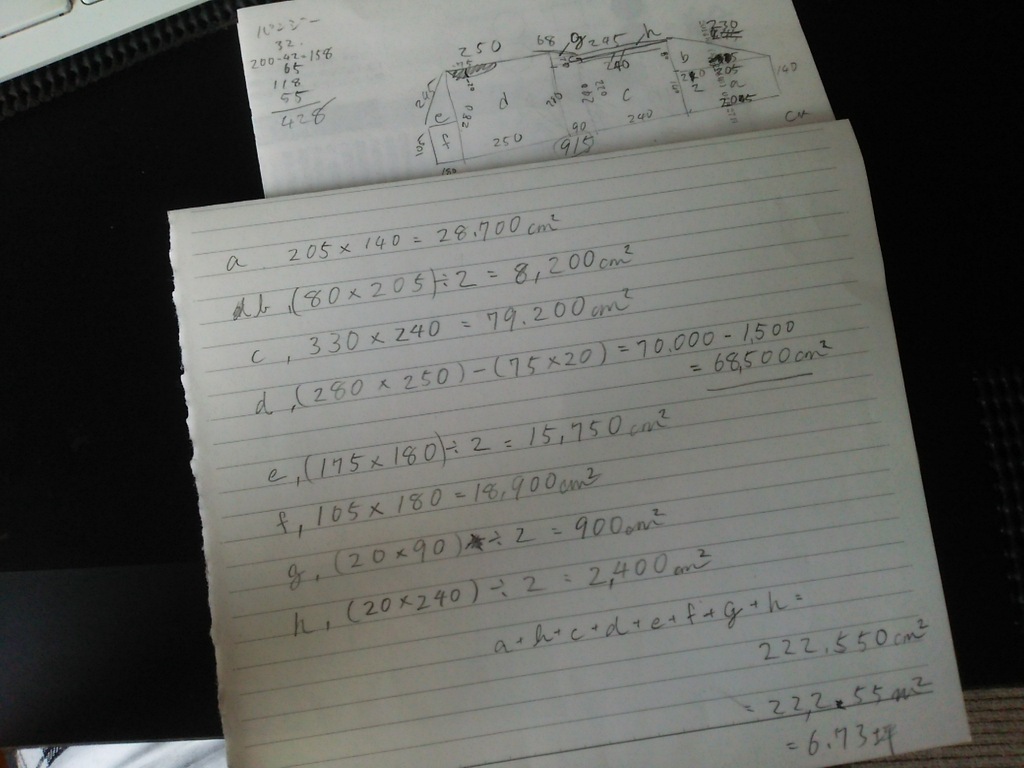 ハンジー
32
200-42=158
65
118
55
428
250
68 g 295 h
230
240
b
205
a
140
205
245
e
f
105
180
280
d
250
90
915
220
c
240
cm
a 205×140=28.700cm²
b,(80×205)÷2=8,200cm²
c, 330×240=79.200cm²
d,(280×250)-(75×20)=70.000-1,500
=68,500cm²
e,(175×180)÷2=15,750cm²
f, 105×180=18,900cm²
g,(20×90)÷2=900cm²
h,(20×240)÷2=2,400cm²
a+b+c+d+e+f+g+h=
222,550cm²
=22,2.55m²
=6.73坪